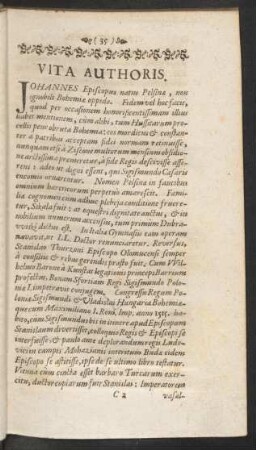 ( 35 )
VITA AUTHORIS.
JOHANNES Episcopus natus Pelsina, non
ignobili Bohemiæ oppido. Fidem vel hoc facit,
quod per occasionem honorificentissimam illius
habet mentionem, cum alibi, tum Hussitarum
cellis pene obruta Bohemia: eos mordicus & constan-
ter a patribus acceptam fidei normam retinuisse,
nunquam etsi à Zisk multorum mensium obsidio-
ne arctissima premeretur, à fide Regis descivisse
rens: adeo ut digni essent, qui Sigismundi Cæsaris
encomio ornarentur. Nomen Pelsina in faucibus
omnium barbarorum perpetuò amarescit. Fami-
liæ cognomen cum adhuc plebeja conditione fruere-
tur, Skala fuit: at equestri dignitate auctus, & in
nobilium numerum accensus, tum primùm Dubra-
vizki dictus est. In Italiæ Gymnasiis cum operam
navaret, Doctor renunciaretur. Reversus,
Stanislao Thurzoni Episcopo Olomucensi semper
à consiliis & rebus gerendis præsto fuit. Cum Wil-
helmo Barone à Kunstat legationis principis Baronem
profectus, Bonam Sfortiam Regi Sigismundo Polo-
niæ Imperatore conjugem. Congressui Regum Po-
loniæ Sigismundi & Vladislai Hungariæ Bohemiæ-
que cum Maximiliano I. Rom. Imp. anno 1515. ha-
bito, cum Sigismundus bis in itinere apud Episcopum
Stanislaum divertisset, colloquio Regis & Episcopi se
interfuisse: & paulò ante deplorandum regis Ludo-
vici in campis Mohazianis interitum Budæ eidem
Episcopo se astitisse, ipse de se ultimo libro testatur.
Vienna cum cincta esset barbaro Turcarum exer-
citu, ductor copiarum fuit Stanislai: Imperatorem
C 2 vasal-